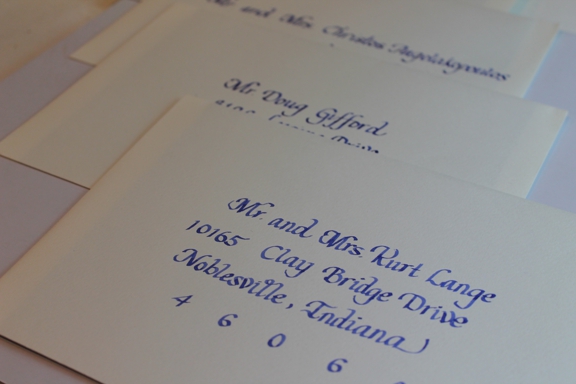 Mr. and Mrs. Christos
Mr Doug Gifford
Mr. and Mrs. Kurt Lange
10165 Clay Bridge Drive
Noblesville, Indiana
4 6 0 6